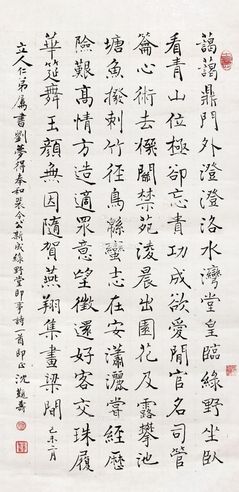 藹藹鼎門外澄澄洛水灣堂皇臨綠野坐臥
看青山位極卻忘貴功成欲愛閒官名司管
籥心術去機關禁苑淩晨出園花及露攀池
塘魚撥剌竹徑鳥緜蠻志在安瀟灑嘗經歷
險艱高情方造適眾意望徵還好客交珠履
華筵舞玉顏無因隨賀燕翔集畫梁間 己未二月
立人仁弟屬書劉夢得奉和裴令公新成綠野堂即事詩一首即正 沈覲壽